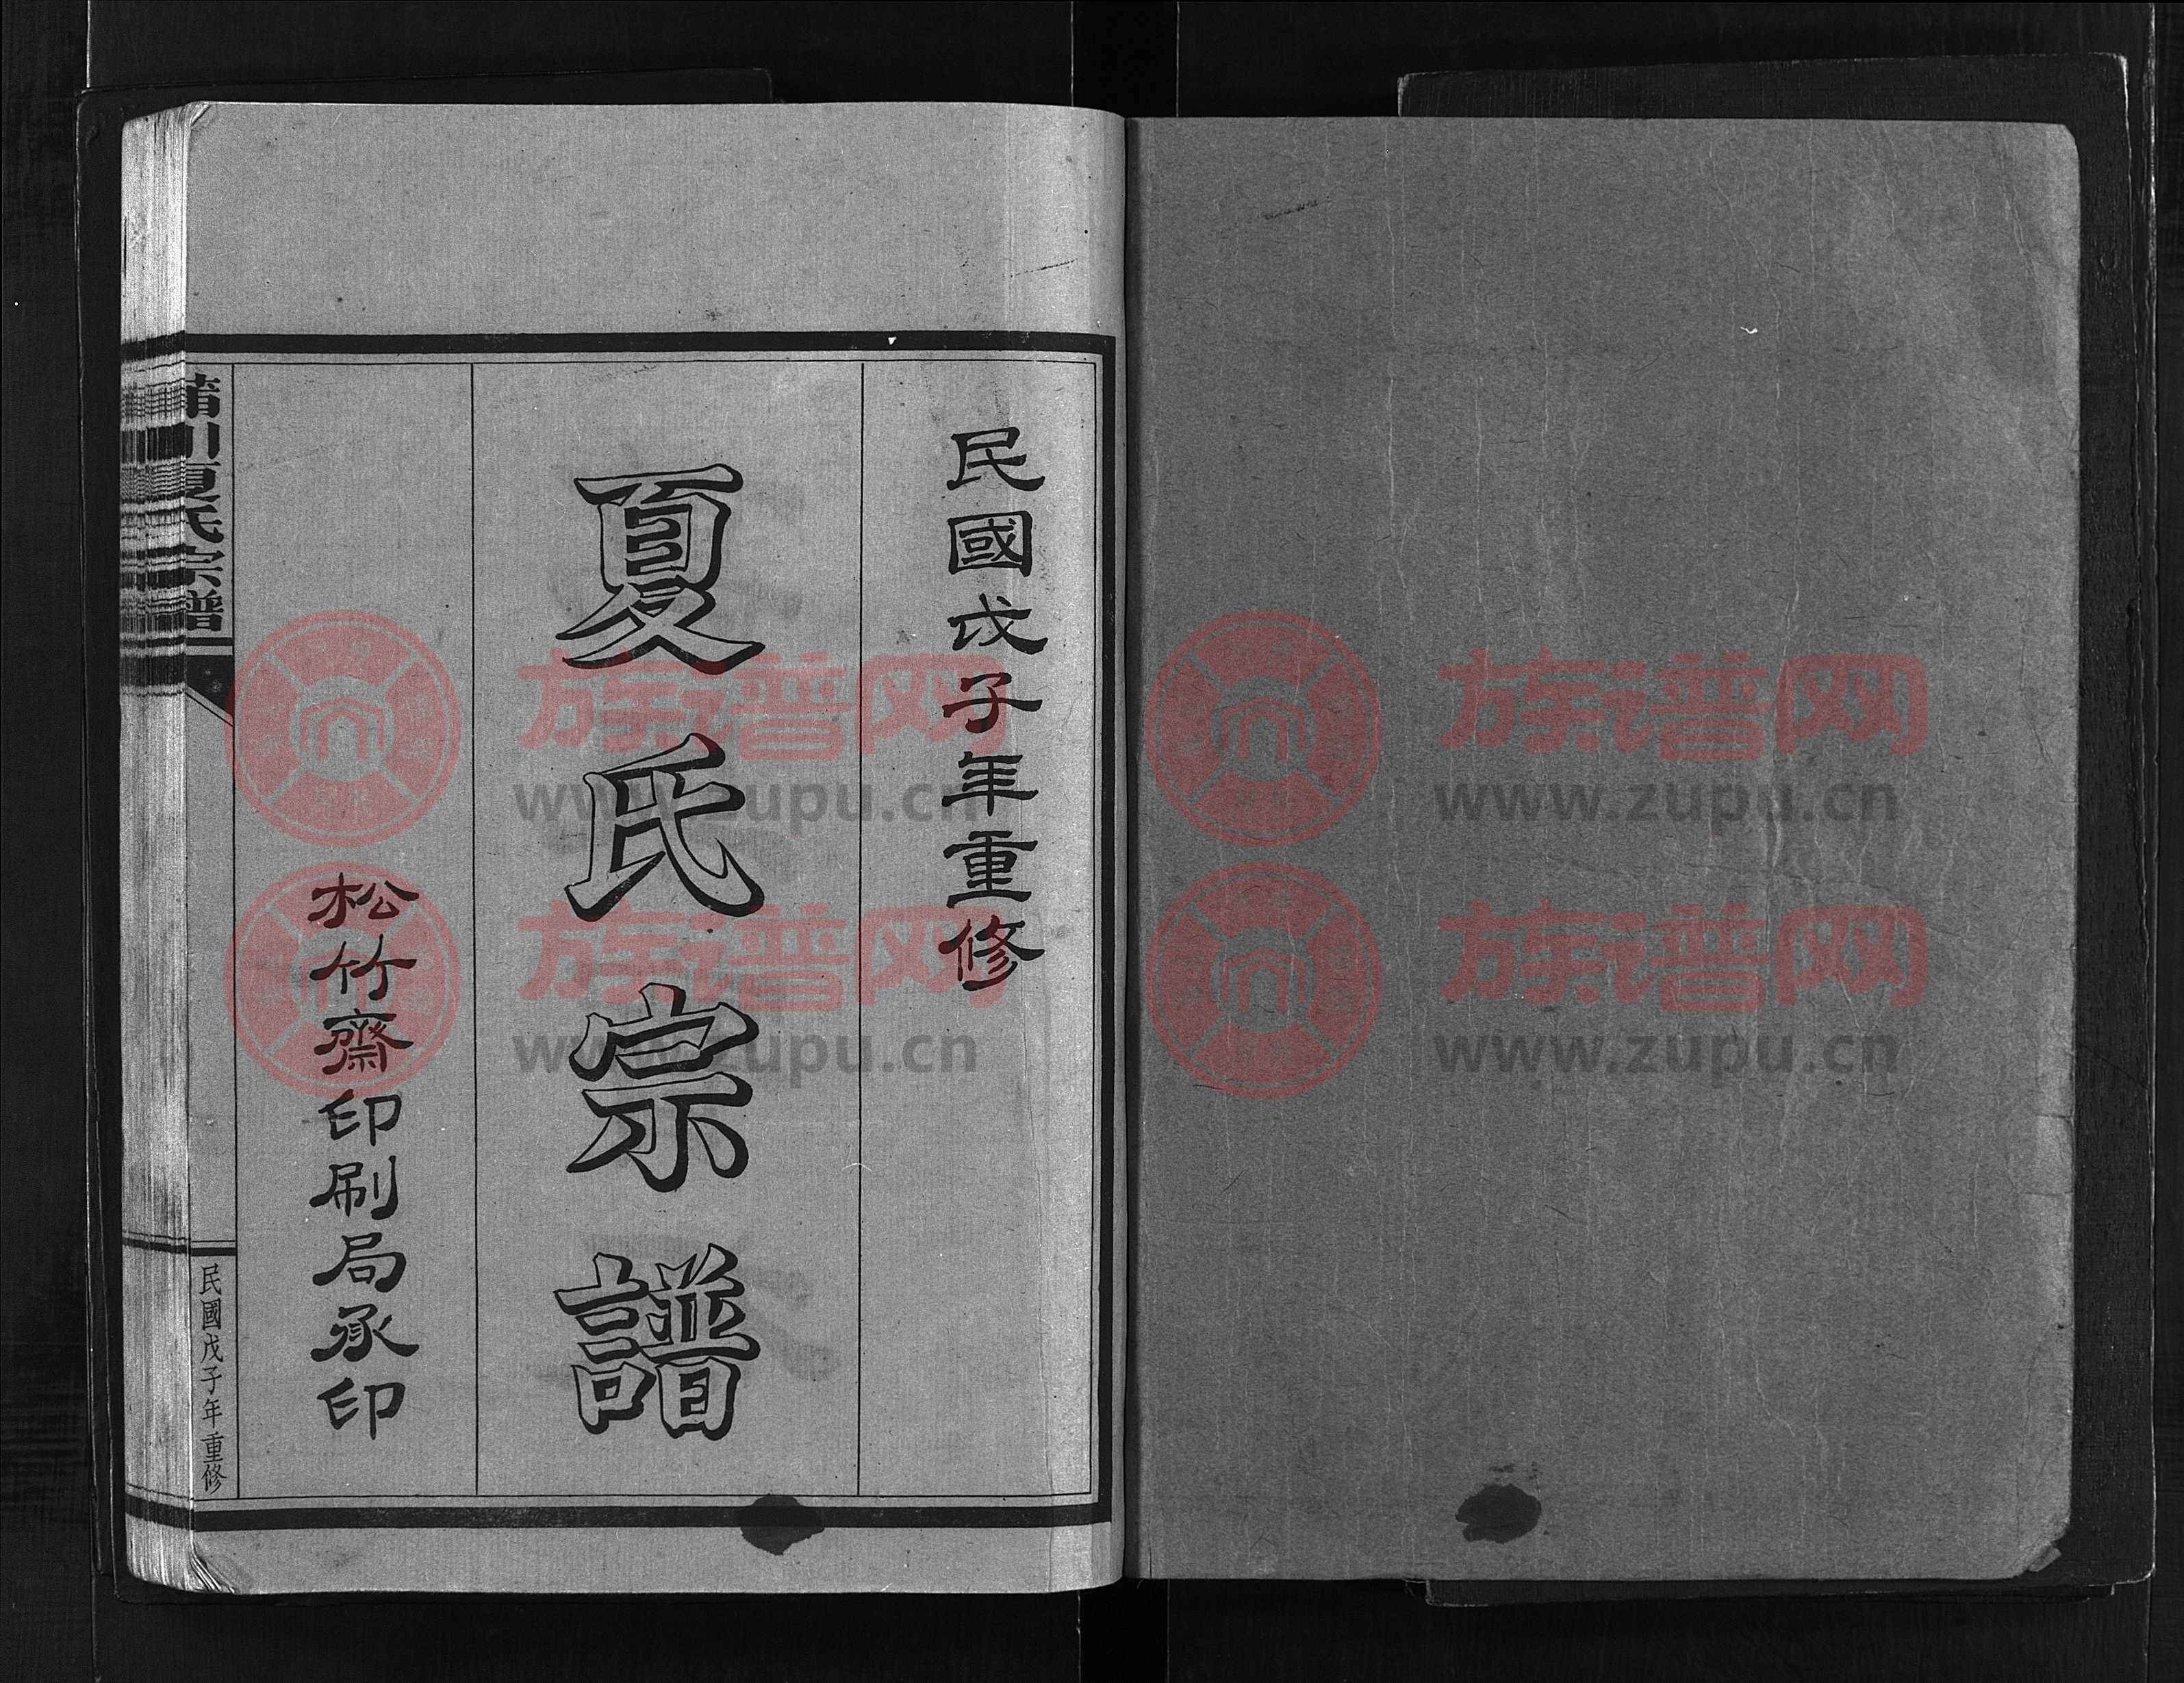 民國戊子年重修
夏氏宗譜
松竹齋印刷局承印
川夏氏宗譜
民國戊子年重修
族谱网
www.zupu.cn
族谱网
www.zupu.cn
族谱网
www.zupu.cn
族谱网
www.zupu.cn